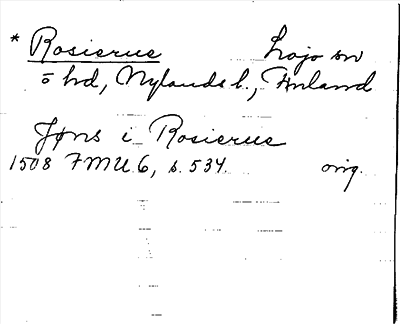 * Rosierue Lojo sn
ö hd, Nylands l., Finland
Jöns i Rosierue
1508 FMU 6, s. 534. orig.